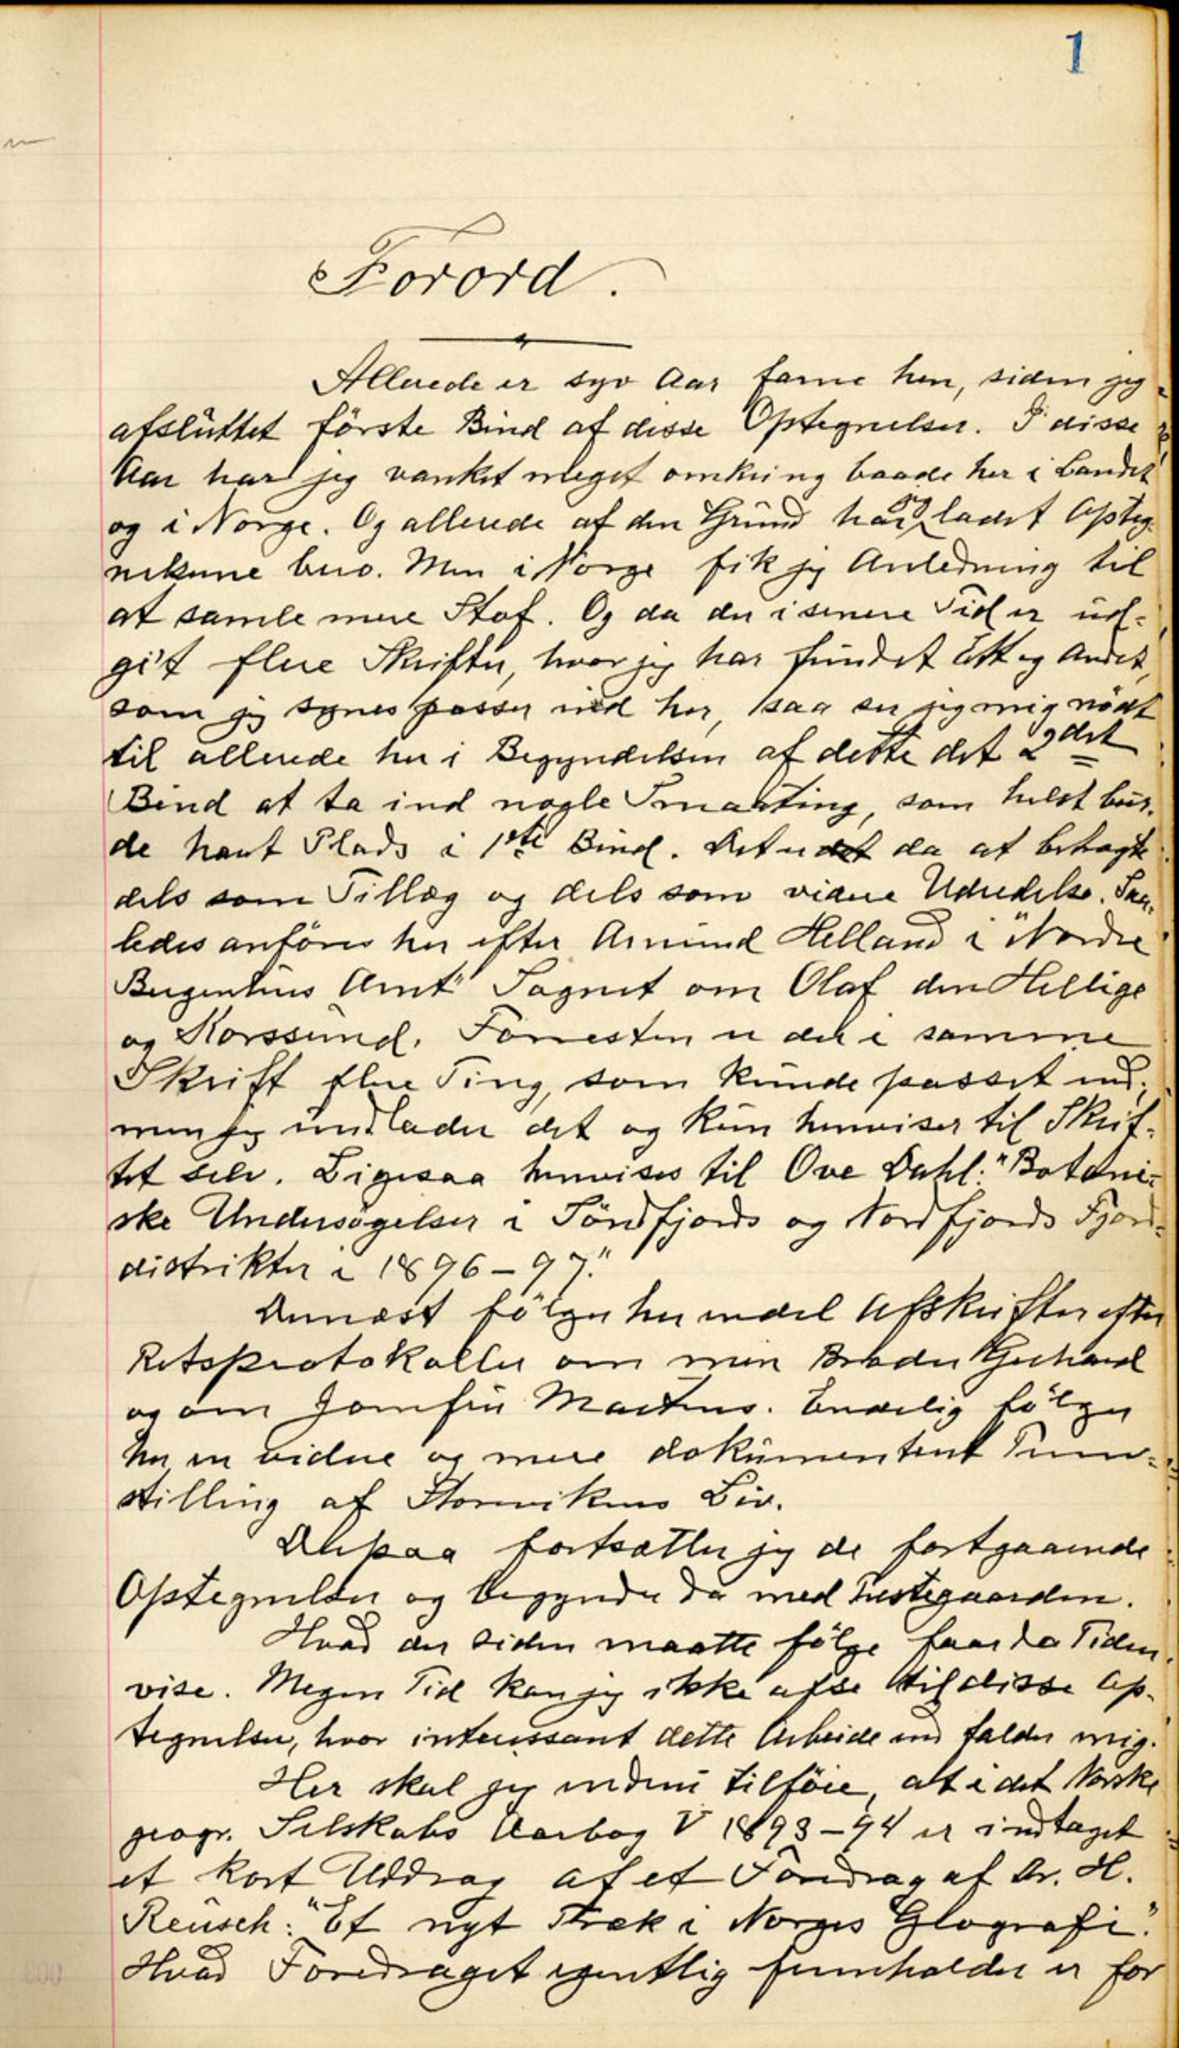 1
Forord.
Allerede er syv Aar farne hen, siden jeg
afsluttet förste Bind af disse Optegnelser. I disse
Aar har jeg vanket meget omkring baade her i Landet
og i Norge. Og allerede af den Grund har jeg ladet Opteg-
nelserne bero. Men i Norge fik jeg Anledning til
at samle mere Stof. Og da der i senere Tid er ud-
git flere Skrifter, hvor jeg har fundet Ett og Andet,
som jeg synes passer ind her, saa ser jeg mig nödt
til allerede her i Begyndelsen af dette det 2det
Bind at ta ind nogle Smaating, som helst bur-
de havt Plads i 1ste Bind. Det er da at betragte
dels som Tillæg og dels som videre Udredelse. Saa-
ledes anföres her efter Amund Helland i "Nordre
Bergenhus Amt" Sagnet om Olaf den Hellige
og Korssund. Forresten er der i samme
Skrift flere Ting, som kunde passet ind;
men jeg undlader det og kun henviser til Skrif-
tet selv. Ligesaa henvises til Ove Dahl: "Botani-
ske Undersögelser i Söndfjords og Nordfjords Fjord-
distrikter i 1896-97."
Dernæst fölger her endel Afskrifter efter
Retsprotokoller om min Broder Gerhard
og om Jomfru Martens. Endelig fölger
her en videre og mere dokumenteret Frem-
stilling af Storvikens Liv.
Derpaa fortsætter jeg de fortgaaende
Optegnelser og begynder da med Prestegaarden.
Hvad der siden maatte fölge faar da Tiden
vise. Megen Tid kan jeg ikke afse til disse Op-
tegnelser, hvor interessant dette Arbeide end falder mig.
Her skal jeg endnu tilföie, at i det Norske
geogr. Selskabs Aarbog V 1893-94 er indtaget
et kort Uddrag af et Foredrag af Dr. H.
Reusch: "Et nyt Træk i Norges Geografi".
Hvad Foredraget egentlig fremholder er for